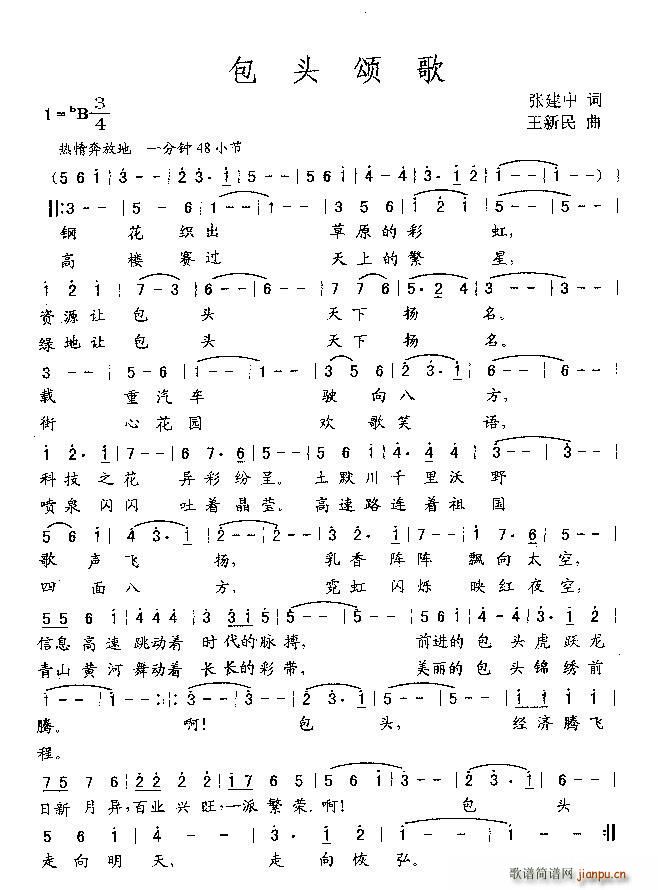 包头颂歌
张建中 词
1=ᵇB 3/4
王新民 曲
热情奔放地 一分钟48小节
钢 花 织出 草原的彩 虹,
高 楼 赛过 天上的繁 星,
资源让 包 头 天下 扬 名。
绿地让 包 头 天下 扬 名。
载 重汽车 驶向八 方,
街 心花园 欢歌笑 语,
科技之花 异彩纷呈。土默川千里沃 野
喷泉闪闪 吐着晶莹。高速路连着祖 国
歌 声飞 扬, 乳香 阵阵 飘向太空,
四 面八 方, 霓虹 闪烁 映红夜空,
信息高速 跳动着 时代的脉搏, 前进的包 头虎跃龙
青山黄河 舞动着 长长的彩带, 美丽的包 头锦绣前
腾。 啊! 包 头, 经济腾飞
程。
日新月异,百业兴旺,一派繁荣,啊! 包 头
走向明 天, 走 向 恢 弘。
歌谱简谱网
jianpu.cn